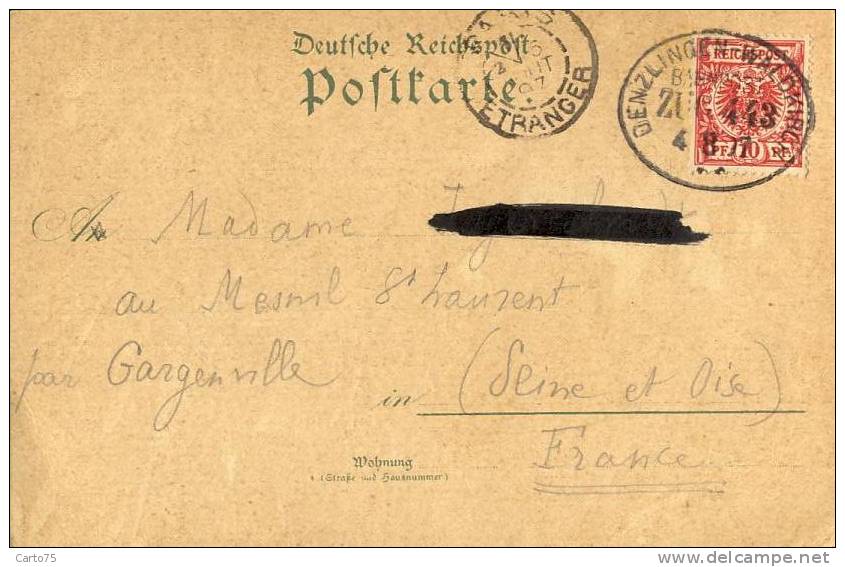 Deutsche Reichspost
Postkarte
PARIS
ETRANGER
DENZLINGEN-WALDKIRCH
BAHNPOST
ZUG 443
4 8 97
REICHSPOST
PF. 10 PF.
An Madame
au Mesnil St Laurent
par Gargenville
in (Seine et Oise)
France
Wohnung
(Straße und Hausnummer)
Carto75
www.delcampe.net